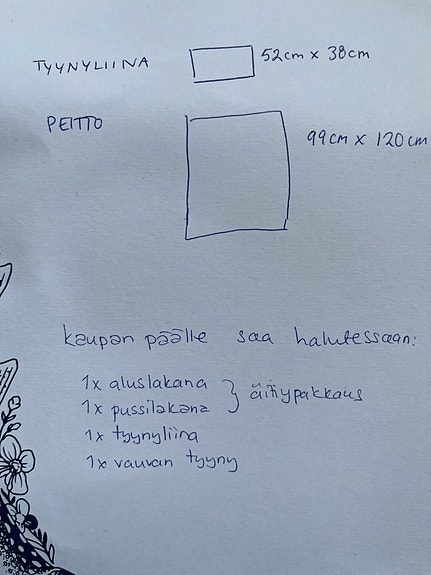 TYYNYLIINA 52cm x 38cm
PEITTO
99cm x 120cm
kaupan päälle saa halutessaan:
1x aluslakana
1x pussilakana } äitiyspakkaus
1x tyynyliina
1x vauvan tyyny